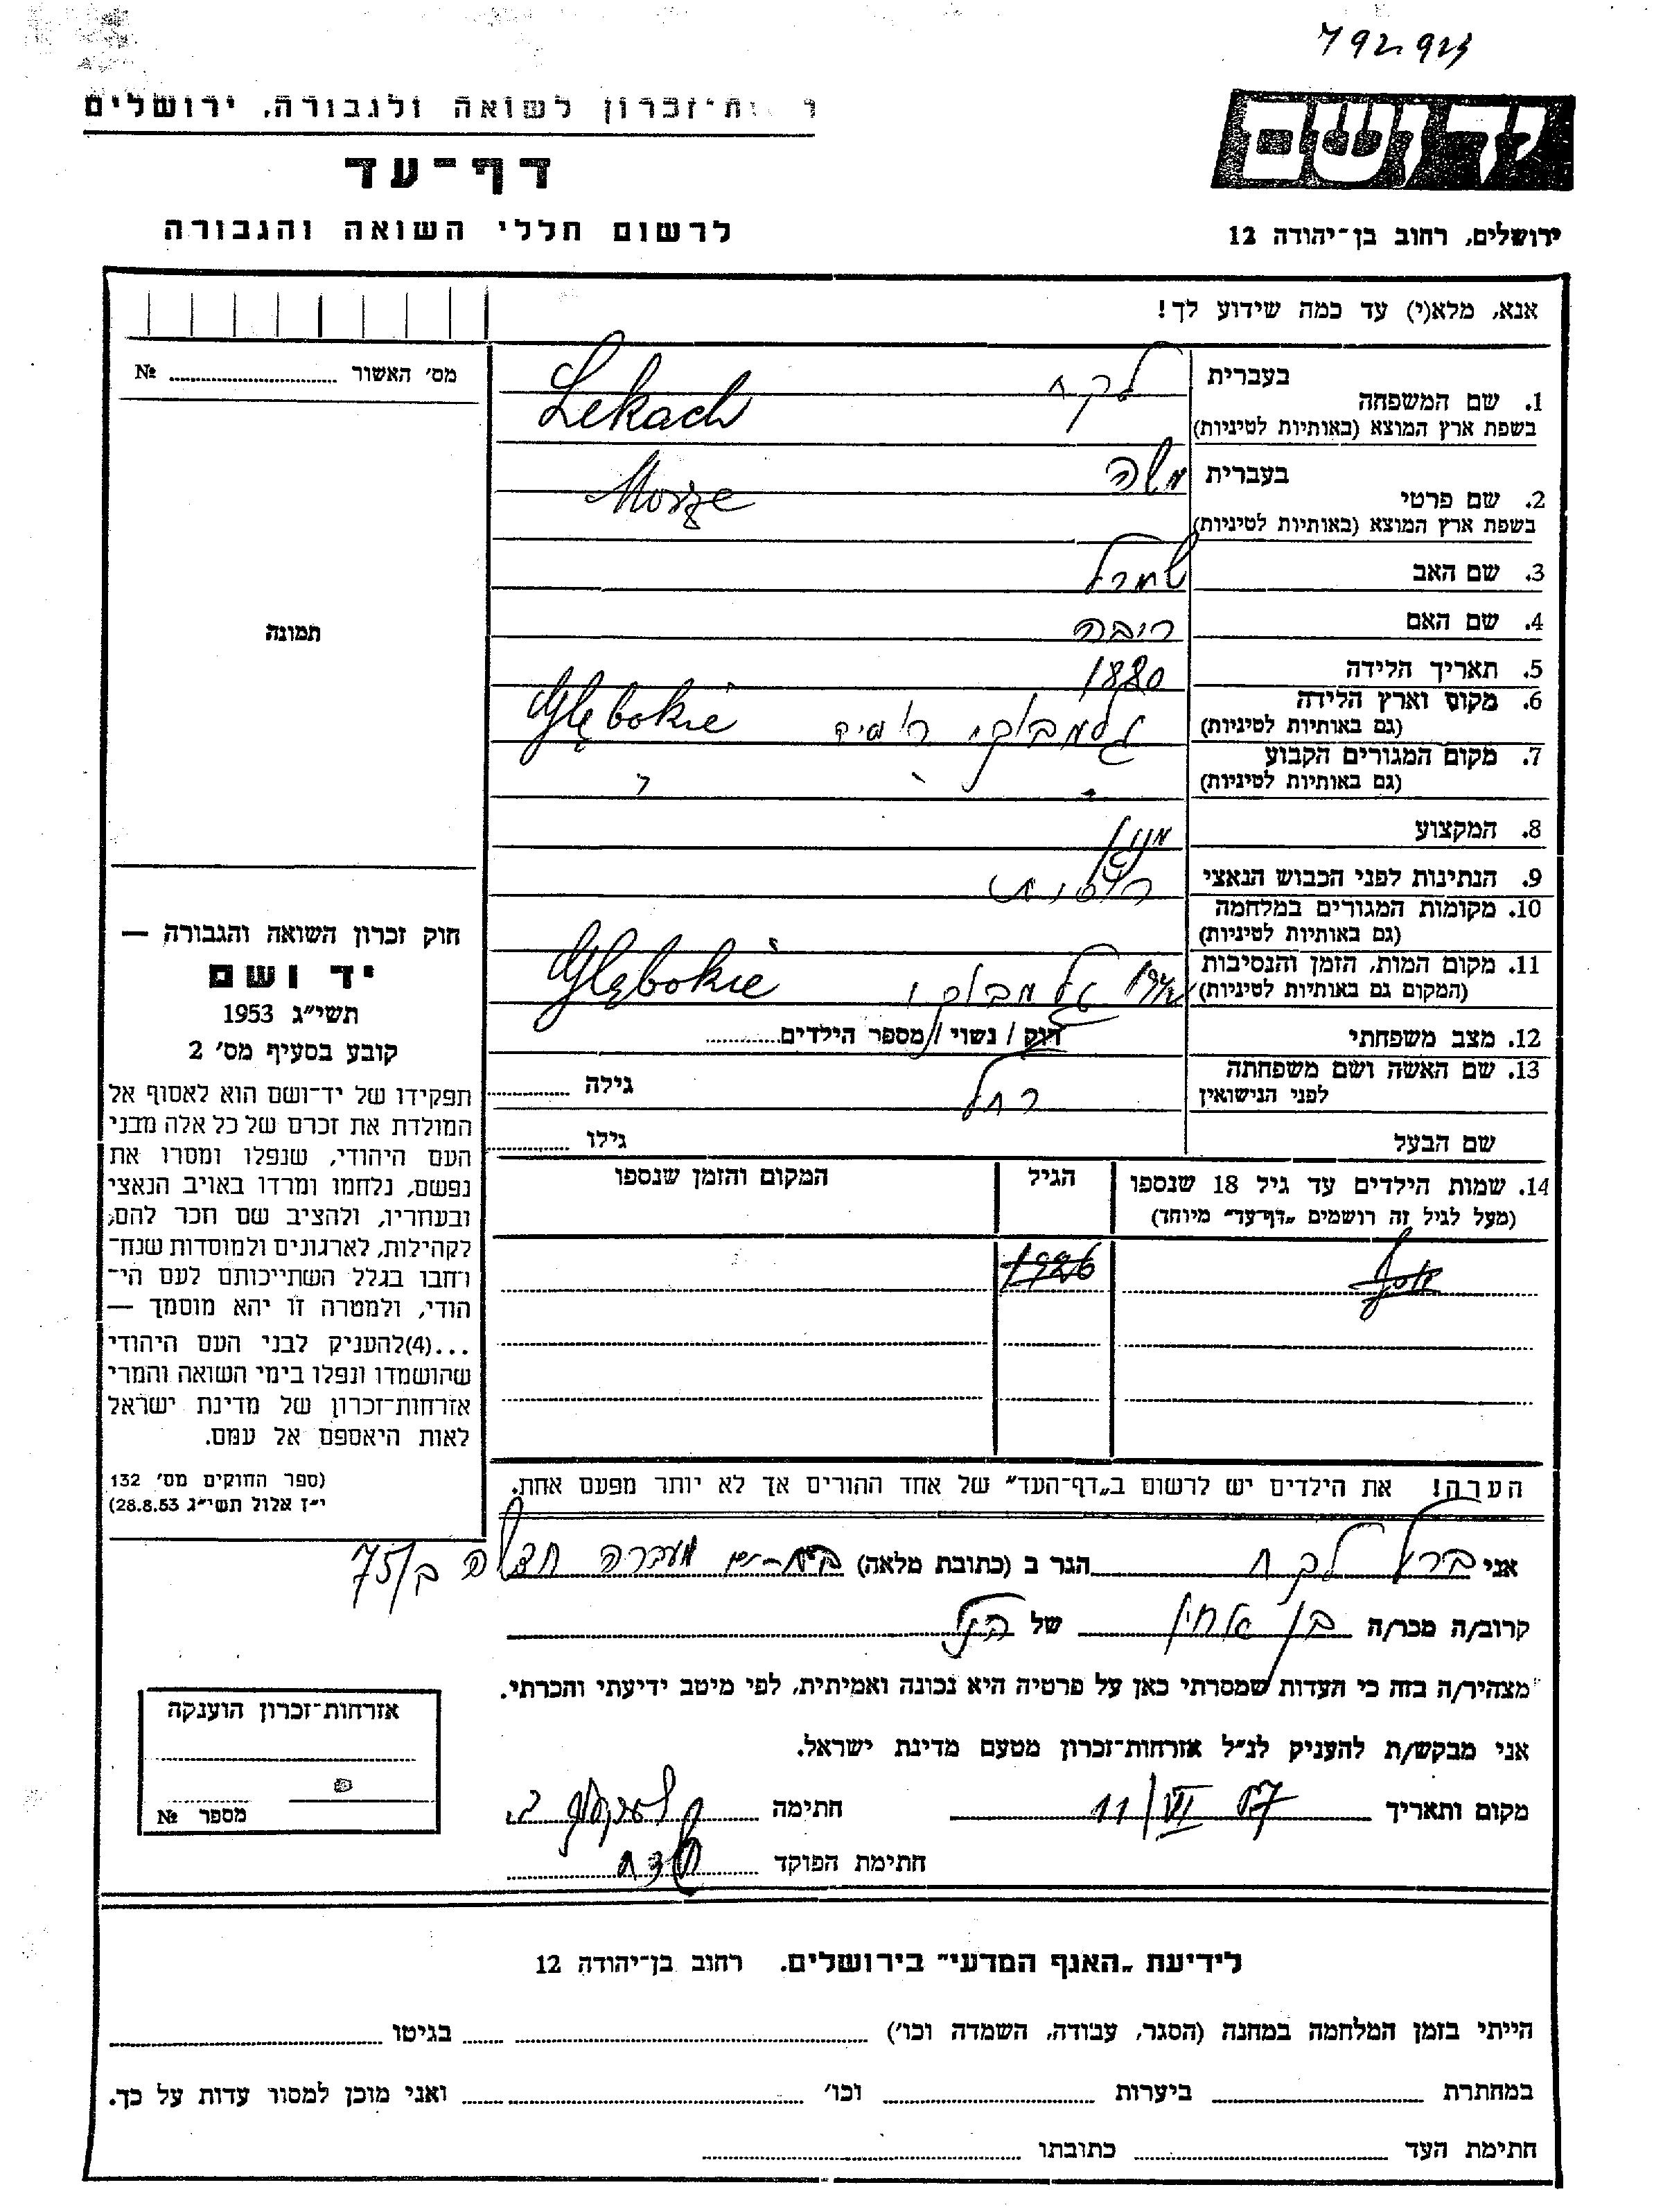 792.923
ות־זכרון לשואה ולגבורה, ירושלים
יד ושם
דף־עד
לרשום חללי השואה והגבורה
ירושלים, רחוב בן־יהודה 12
אנא, מלא(י) עד כמה שידוע לך!
מס׳ האשור № 
תמונה
בעברית
1. שם המשפחה
בשפת ארץ המוצא (באותיות לטיניות)
לקח
Lekach
בעברית
2. שם פרטי
בשפת ארץ המוצא (באותיות לטיניות)
משה
3. שם האב
4. שם האם
ריבה
5. תאריך הלידה 1880
6. מקום וארץ הלידה
(גם באותיות לטיניות)
Głębokie
7. מקום המגורים הקבוע
(גם באותיות לטיניות)
8. המקצוע
9. הנתינות לפני הכבוש הנאצי
10. מקומות המגורים במלחמה
(גם באותיות לטיניות)
11. מקום המות, הזמן והנסיבות
(המקום גם באותיות לטיניות)
Głębokie
12. מצב משפחתי רוק / נשוי / מספר הילדים
13. שם האשה ושם משפחתה
לפני הנישואין
רחל גילה
שם הבעל גילו
14. שמות הילדים עד גיל 18 שנספו הגיל המקום והזמן שנספו
(מעל לגיל זה רושמים „דף־עד״ מיוחד)
יוסף 1926
הערה! את הילדים יש לרשום ב„דף־העד״ של אחד ההורים אך לא יותר מפעם אחת.
חוק זכרון השואה והגבורה —
יד ושם
תשי״ג 1953
קובע בסעיף מס׳ 2
תפקידו של יד־ושם הוא לאסוף אל
המולדת את זכרם של כל אלה מבני
העם היהודי, שנפלו ומסרו את
נפשם, נלחמו ומרדו באויב הנאצי
ובעחריו, ולהציב שם חכר להם,
לקהילות, לארגונים ולמוסדות שנח־
רחבו בגלל השתייכותם לעם הי־
הודי, ולמטרה זו יהא מוסמך —
...(4)להעניק לבני העם היהודי
שהושמדו ונפלו בימי השואה והמרי
אזרחות־זכרון של מדינת ישראל
לאות היאספם אל עמם.
(ספר החוקים מס׳ 132
י״ז אלול תשי״ג 28.8.53)
אני ברל לקח הגר ב (כתובת מלאה) מעברה חדשה ב/75
קרוב/ה מכר/ה בן אחין של הנ״ל
מצהיר/ה בזה כי העדות שמסרתי כאן על פרטיה היא נכונה ואמיתית, לפי מיטב ידיעתי והכרתי.
אני מבקש/ת להעניק לנ״ל אזרחות־זכרון מטעם מדינת ישראל.
מקום ותאריך 11/VI 57 חתימה
חתימת הפוקד
אזרחות־זכרון הוענקה
מספר №
לידיעת „האגף המדעי״ בירושלים. רחוב בן־יהודה 12
הייתי בזמן המלחמה במחנה (הסגר, עבודה, השמדה וכו׳) בגיטו
במחתרת ביערות וכו׳ ואני מוכן למסור עדות על כך.
חתימת העד כתובתו